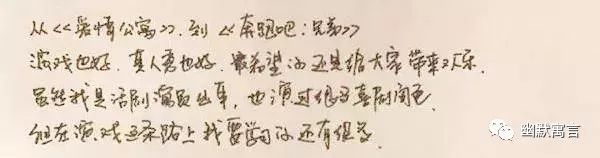 从《爱情公寓》.到《奔跑吧:兄弟》
演戏也好.真人秀也好.最希望的还是给大家带来欢乐.
虽然我是话剧演员出身,也演过很多喜剧角色.
但在演戏这条路上我要学习的还有很多.
幽默寓言